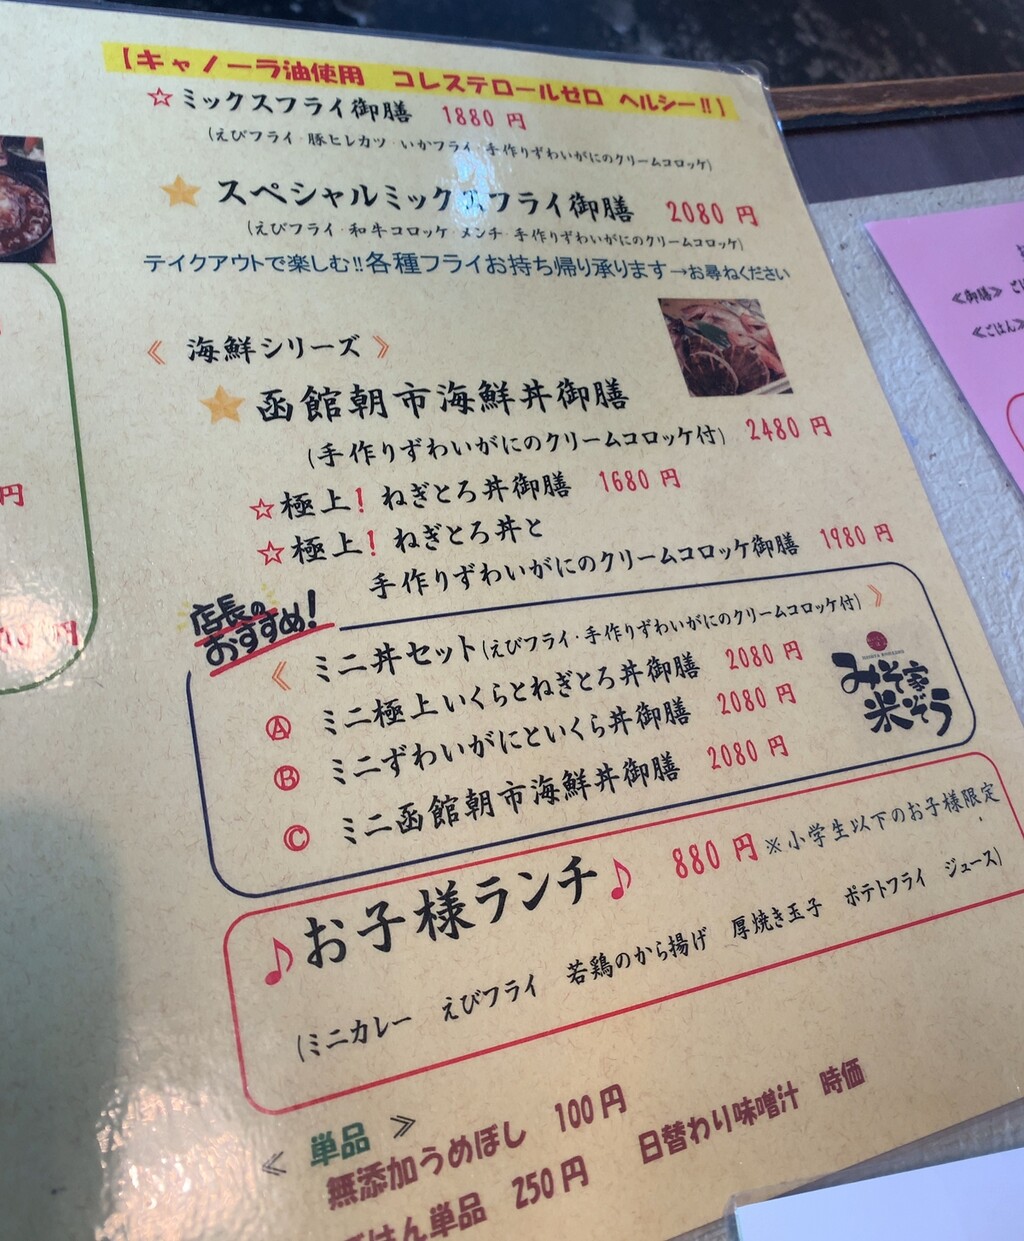 【キャノーラ油使用 コレステロールゼロ ヘルシー!!】
☆ミックスフライ御膳 1880円
(えびフライ・豚ヒレカツ・いかフライ・手作りずわいがにのクリームコロッケ)
★スペシャルミックスフライ御膳 2080円
(えびフライ・和牛コロッケ・メンチ・手作りずわいがにのクリームコロッケ)
テイクアウトで楽しむ!!各種フライお持ち帰り承ります→お尋ねください
《海鮮シリーズ》
★函館朝市海鮮丼御膳
(手作りずわいがにのクリームコロッケ付) 2480円
☆極上!ねぎとろ丼御膳 1680円
☆極上!ねぎとろ丼と
手作りずわいがにのクリームコロッケ御膳 1980円
店長の
おすすめ!
《ミニ丼セット(えびフライ・手作りずわいがにのクリームコロッケ付)》
Ⓐ ミニ極上いくらとねぎとろ丼御膳 2080円
Ⓑ ミニずわいがにといくら丼御膳 2080円
Ⓒ ミニ函館朝市海鮮丼御膳 2080円
みそ家
米ぞう
♪お子様ランチ♪ 880円 ※小学生以下のお子様限定
(ミニカレー えびフライ 若鶏のから揚げ 厚焼き玉子 ポテトフライ ジュース)
≪単品≫
無添加うめぼし 100円
日替わり味噌汁 時価
ごはん単品 250円
円
円
≪御膳≫
≪ごはん≫